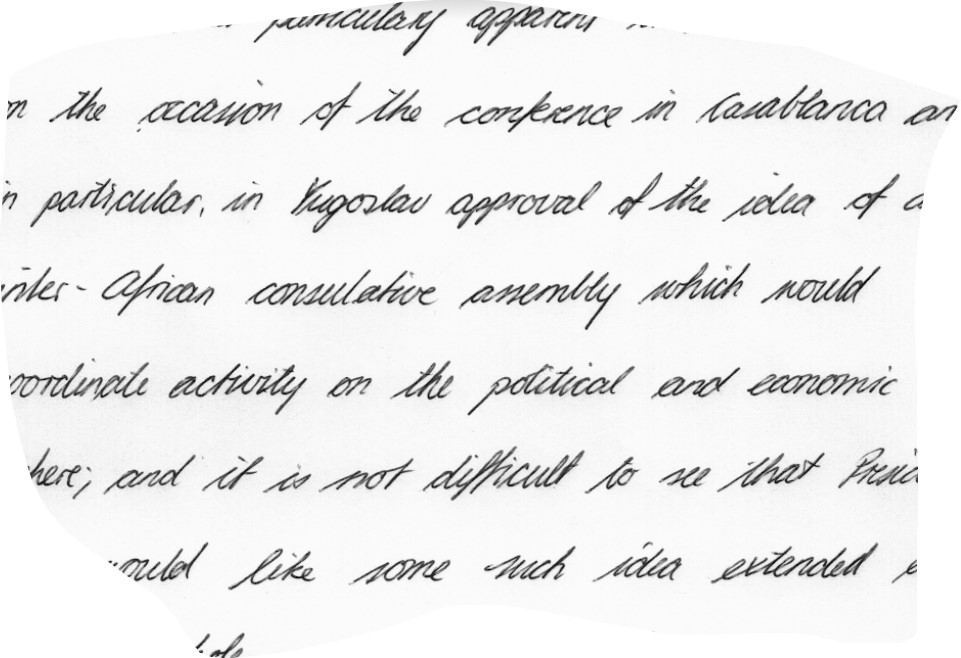 particulary apparent
on the occasion of the conference in Casablanca an
in particular, in Yugoslav approval of the idea of a
inter-African consulative assembly which would
coordinate activity on the political and economic
here; and it is not difficult to see that Presid
would like some such idea extended